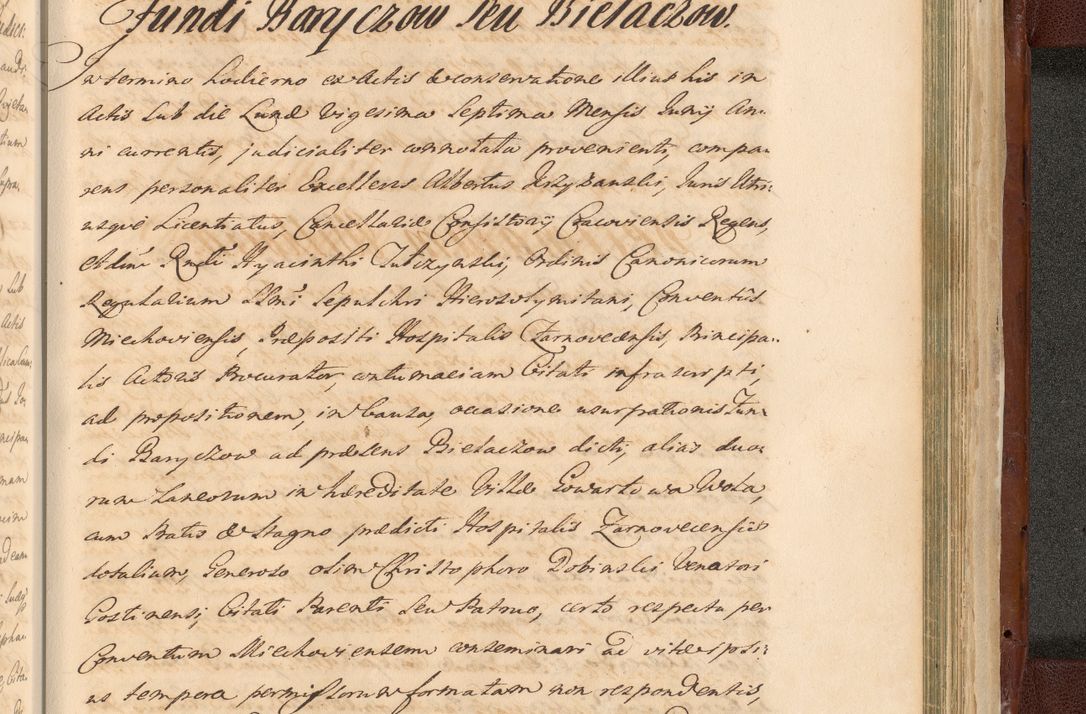 Fundi Baryczow seu Bielaczow.
In termino hodierno ex Actis & conservatione illius his in
Actis sub die Lunæ vigesima septima Mensis Junij An-
ni currentis, judicialiter connotata provenienti, compa-
rens personaliter Excellens Albertus Juris Utri-
usque Licentiatus, Cancellariæ Consistorij Cracoviensis Regens,
Rndi Hyacinthi Ordinis Canonicorum
Regularium Ssmi Sepulchri Hierosolymitani, Conventûs
Miechoviensis, Præpositi Hospitalis Zarnovecensis, Principa-
lis Actoris Procurator, contumaciam Citati infrascripti,
ad propositionem, in Causa, occasione usurpationis Fun-
di Baryczow ad præsens Bielaczow dicti, alias duo-
rum Laneorum in hæreditate Villæ Gowartowa Wola,
cum Pratis & Stagno prædicti Hospitalis Zarnovecensis
dotalium, Generoso olim Christophoro Dobinski Venatori
Gostinensi, Citati Parenti seu Patruo, certo respectu per
Conventum Miechoviensem conseminari ad vitæ ipsi-
us tempora permissorum formatam non respondentis,